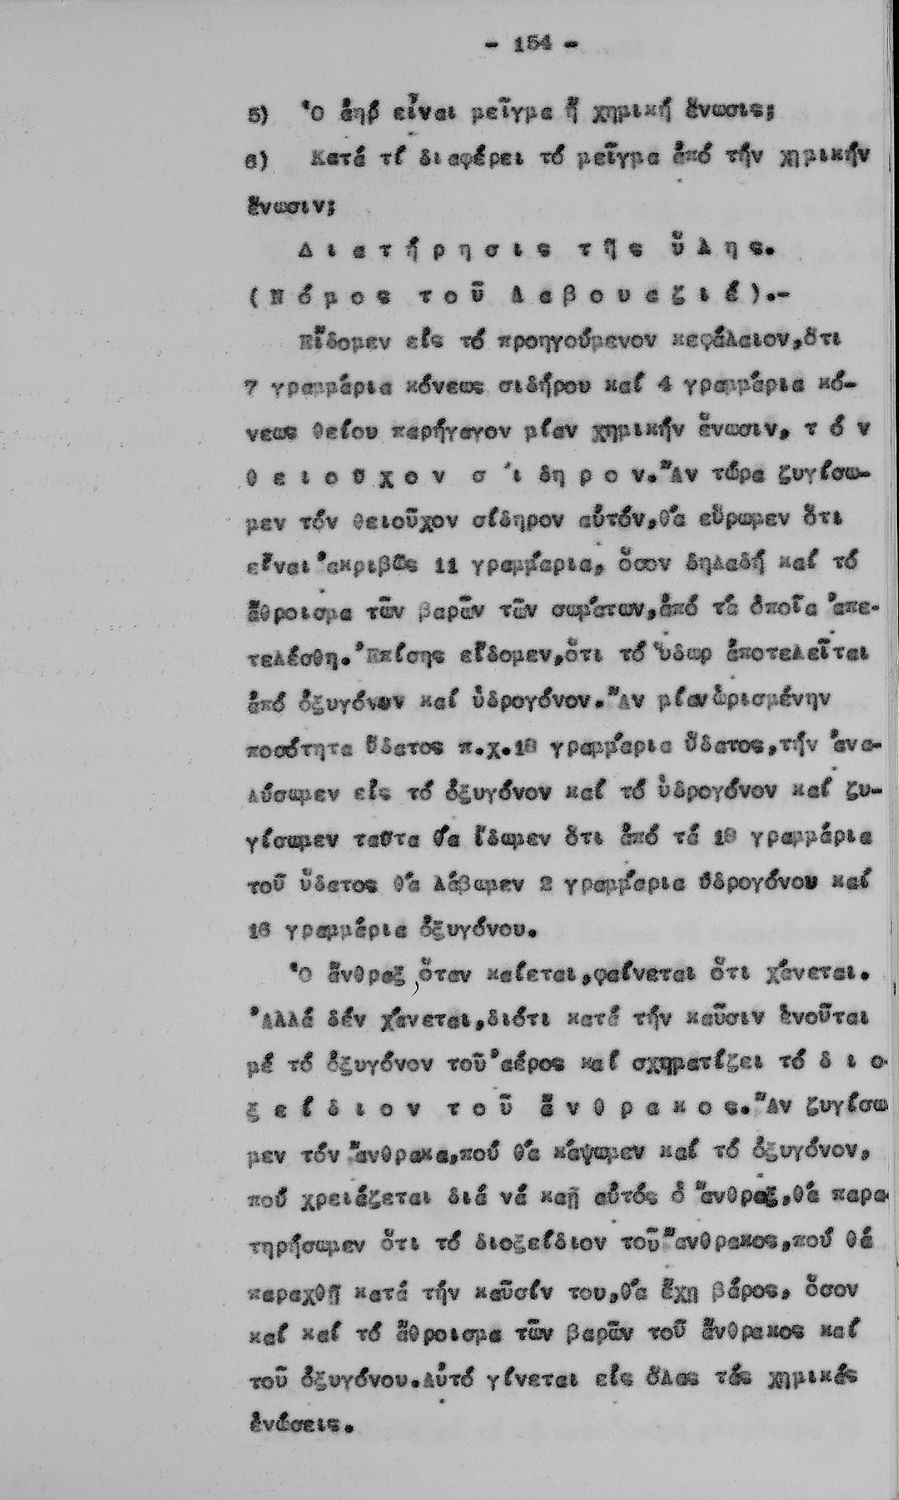 - 154 -
5) Ὁ ἀήρ εἶναι μεῖγμα ἤ χημική ἕνωσις;
6) Κατά τί διαφέρει τό μεῖγμα ἀπό τήν χημικήν
ἕνωσιν;
Δ ι α τ ή ρ η σ ι ς τ ῆ ς ὕ λ η ς.
(Ν ό μ ο ς τ ο ῦ Λ α β ο υ α ζ ι έ).-
Εἴδομεν είς τό προηγούμενον κεφάλαιον,ὅτι
7 γραμμάρια κόνεως σιδήρου καί 4 γραμμάρια κό-
νεως θείου παρήγαγον μίαν χημικήν ἕνωσιν, τ ό ν
θ ε ι ο ῦ χ ο ν σ ί δ η ρ ο ν.Ἄν τώρα ζυγίσω-
μεν τόν θειοῦχον σίδηρον αὐτόν,θά εὕρωμεν ὅτι
εἶναι ἀκριβῶς 11 γραμμάρια, ὅσον δηλαδή καί τό
ἄθροισμα τῶν βαρῶν τῶν σωμάτων,ἀπό τά ὁποῖα ἀπε-
τελέσθη.Ἐπίσης εἴδομεν,ὅτι τό ὕδωρ ἀποτελεῖται
ἀπό ὀξυγόνων καί ὑδρογόνον.Ἄν μίαν ὡρισμένην
ποσότητα ὕδατος π.χ.18 γραμμάρια ὕδατος,τήν ἀνα-
λύσωμεν είς τό ὀξυγόνον καί τό ὑδρογόνον καί ζυ-
γίσωμεν ταῦτα θά ἴδωμεν ὅτι ἀπό τά 18 γραμμάρια
τοῦ ὕδατος θά λάβωμεν 2 γραμμάρια ὑδρογόνου καί
16 γραμμάρια ὀξυγόνου.
Ὁ ἄνθραξ,ὅταν καίεται,φαίνεται ὅτι χάνεται.
Ἀλλά δέν χάνεται,διότι κατά τήν καῦσιν ἑνοῦται
μέ τό ὀξυγόνον τοῦ ἀέρος καί σχηματίζει τό δ ι ο-
ξ ε ί δ ι ο ν τ ο ῦ ἄ ν θ ρ α κ ο ς.Ἄν ζυγίσω
μεν τόν ἄνθρακα,πού θά κάψωμεν καί τό ὀξυγόνον,
πού χρειάζεται διά νά καῇ αὐτός ὁ ἄνθραξ,θά παρα-
τηρήσωμεν ὅτι τό διοξείδιον τοῦ ἄνθρακος,πού θά
παραχθῇ κατά τήν καῦσίν του,θά ἔχῃ βάρος, ὅσον
καί καί τό ἄθροισμα τῶν βαρῶν τοῦ ἄνθρακος καί
τοῦ ὀξυγόνου.Αὐτό γίνεται είς ὅλας τάς χημικάς
ἑνώσεις.